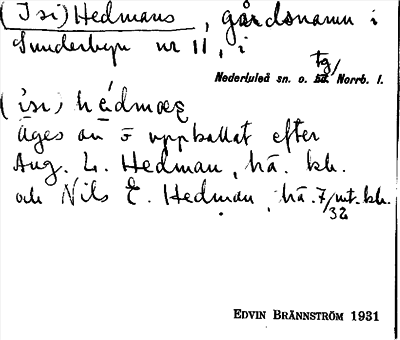 (Isi) Hedmans, gårdsnamn i
Sunderbyn nr 11, i
tg/
Nederluleå sn. o. hd. Norrb. l.
(isi) hédmæs
Äges av o uppkallat efter
Aug. L. Hedman, hä. bh.
och Nils E. Hedman, hä. 7/32 mt. bh.
EDVIN BRÄNNSTRÖM 1931